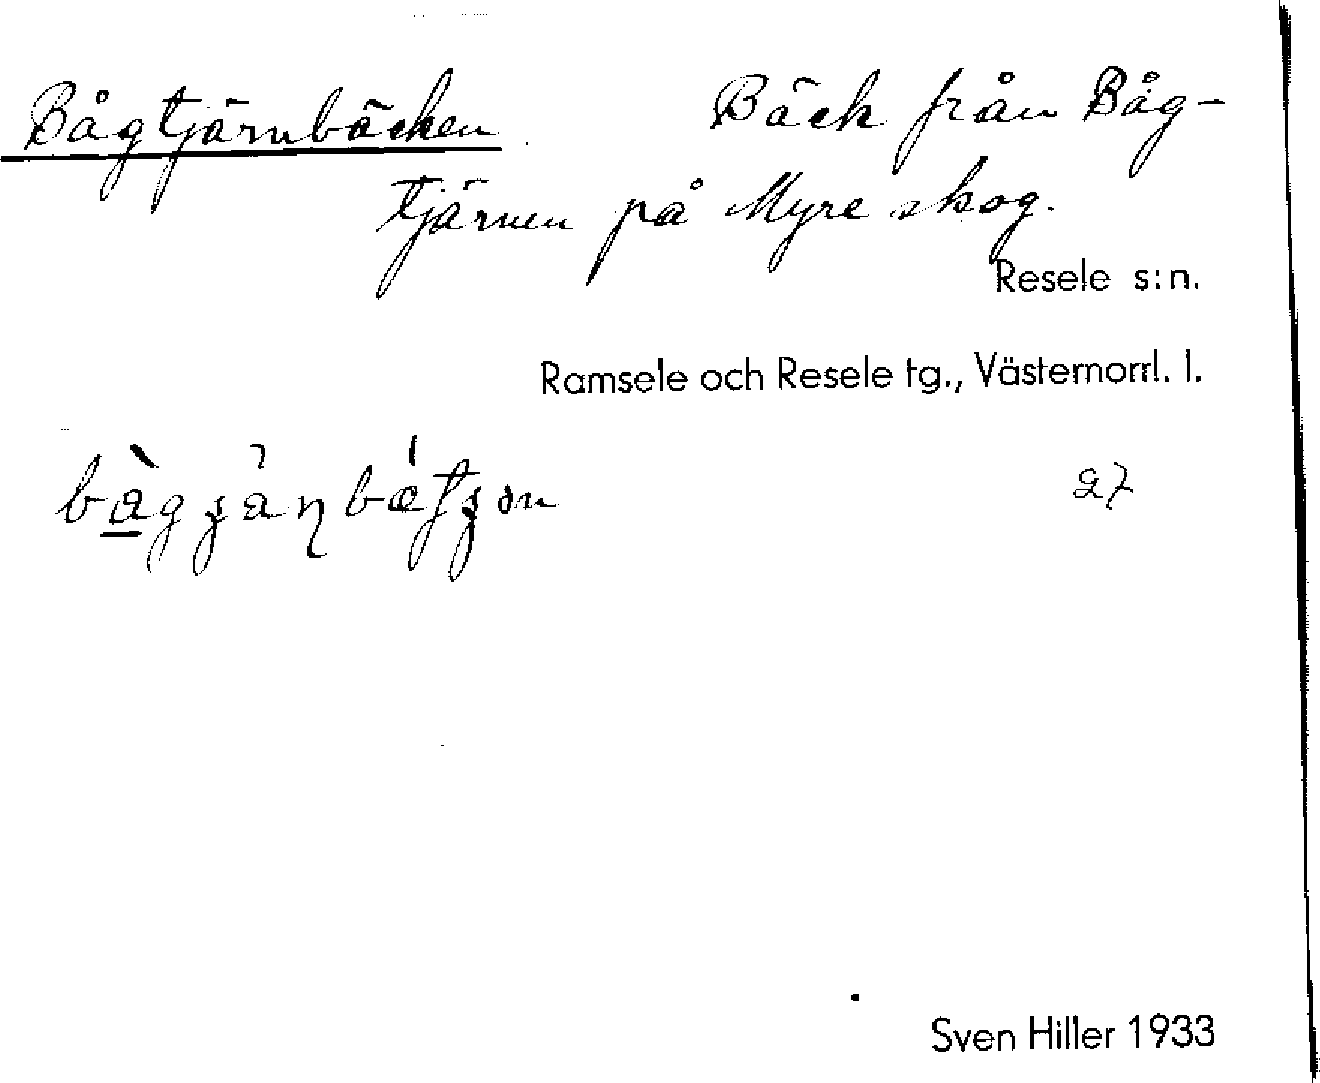 Bågtjärnbäcken Bäck från Båg-
tjärnen på Myre skog.
Resele s:n.
Ramsele och Resele tg., Västernorrl. l.
27
Sven Hiller 1933